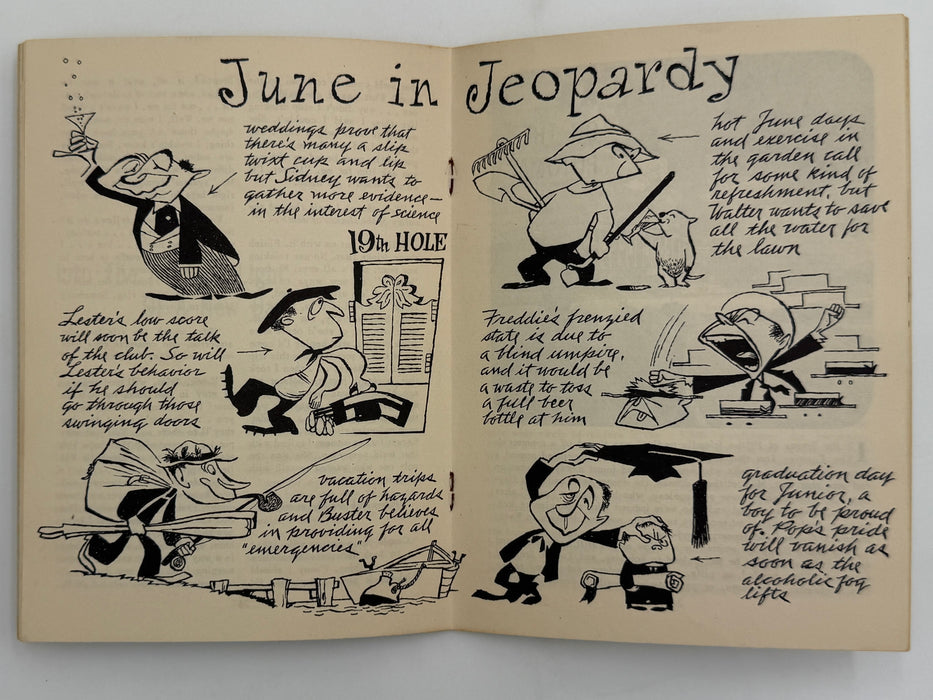 June in Jeopardy
weddings prove that
there's many a slip
twixt cup and lip
but Sidney wants to
gather more evidence—
in the interest of science
19th HOLE
Lester's low score
will soon be the talk
of the club. So will
Lester's behavior
if he should
go through those
swinging doors
vacation trips
are full of hazards
and Buster believes
in providing for all
"emergencies"
hot June days
and exercise in
the garden call
for some kind of
refreshment, but
Walter wants to save
all the water for
the lawn
Freddie's frenzied
state is due to
a blind umpire,
and it would be
a waste to toss
a full beer
bottle at him
graduation day
for Junior, a
boy to be proud
of. Pop's pride
will vanish as
soon as the
alcoholic fog
lifts